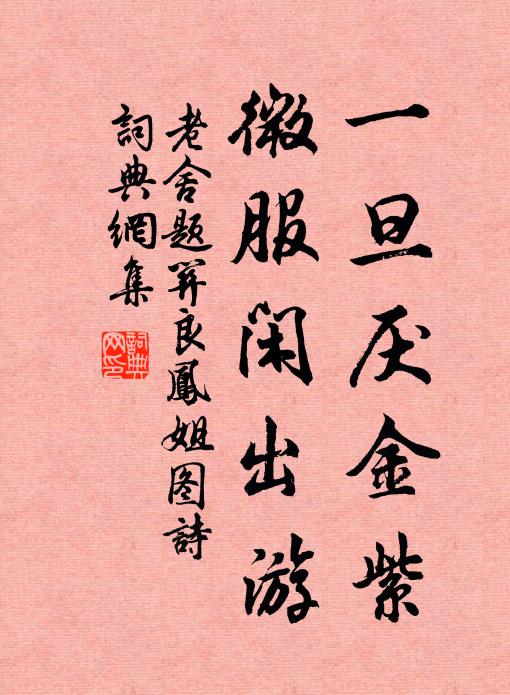 一旦厌金紫
微服闲出游
老舍题昇良鳳姐图詩
詞典網集
詞典網印